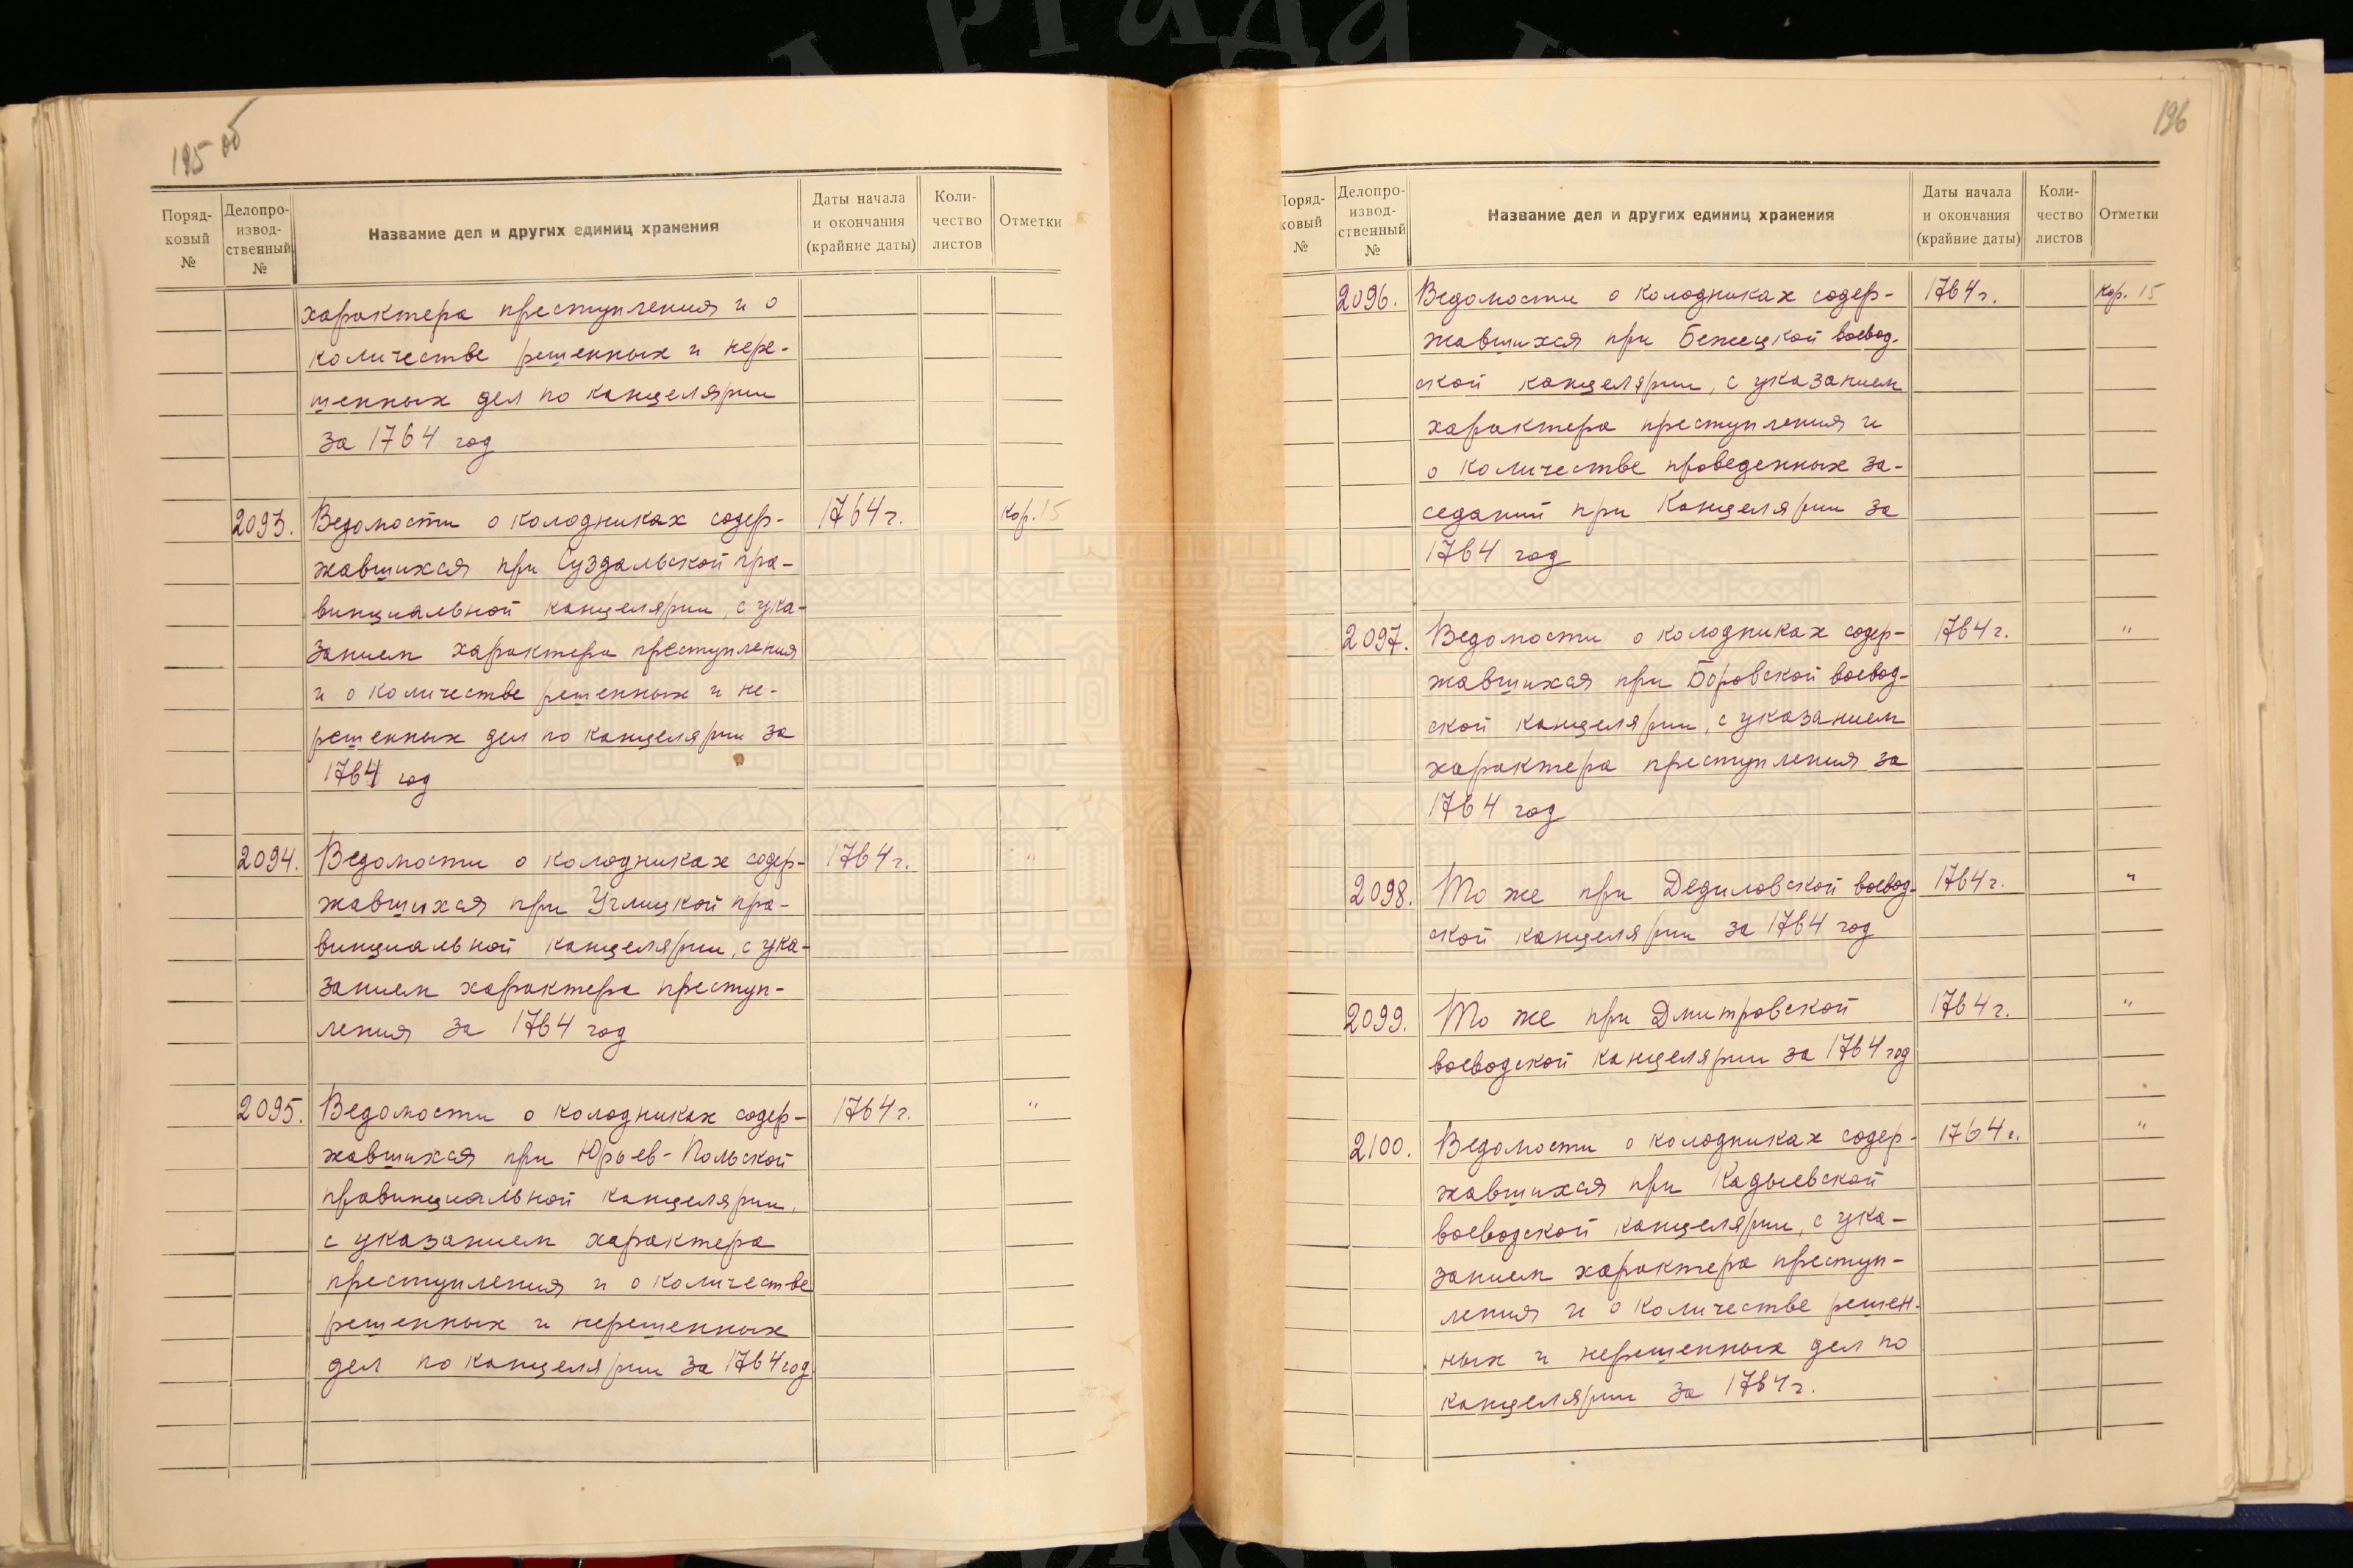 195 об
Поряд-
ковый
№
Делопро-
извод-
ственный
№
Название дел и других единиц хранения
Даты начала
и окончания
(крайние даты)
Коли-
чество
листов
Отметки
характера преступления и о
количестве решенных и нере-
шенных дел по канцелярии
за 1764 год
2093. Ведомости о колодниках содер- 1764 г. Кор. 15
жавшихся при Суздальской про-
винциальной канцелярии, с ука-
занием характера преступления
и о количестве решенных и не-
решенных дел по канцелярии за
1764 год
2094. Ведомости о колодниках содер- 1764 г. "
жавшихся при Углицкой про-
винциальной канцелярии, с ука-
занием характера преступ-
ления за 1764 год
2095. Ведомости о колодниках содер- 1764 г. "
жавшихся при Юрьев-Польской
провинциальной канцелярии,
с указанием характера
преступления и о количестве
решенных и нерешенных
дел по канцелярии за 1764 год
196
Поряд-
ковый
№
Делопро-
извод-
ственный
№
Название дел и других единиц хранения
Даты начала
и окончания
(крайние даты)
Коли-
чество
листов
Отметки
2096. Ведомости о колодниках содер- 1764 г. Кор. 15
жавшихся при Бежецкой воевод-
ской канцелярии, с указанием
характера преступления и
о количестве проведенных за-
седаний при Канцелярии за
1764 год
2097. Ведомости о колодниках содер- 1764 г. "
жавшихся при Боровской воевод-
ской канцелярии, с указанием
характера преступления за
1764 год
2098. То же при Дедиловской воевод- 1764 г. "
ской канцелярии за 1764 год
2099. То же при Дмитровской 1764 г. "
воеводской канцелярии за 1764 год
2100. Ведомости о колодниках содер- 1764 г. "
жавшихся при Кадыевской
воеводской канцелярии, с ука-
занием характера преступ-
ления и о количестве решен-
ных и нерешенных дел по
канцелярии за 1764 г.